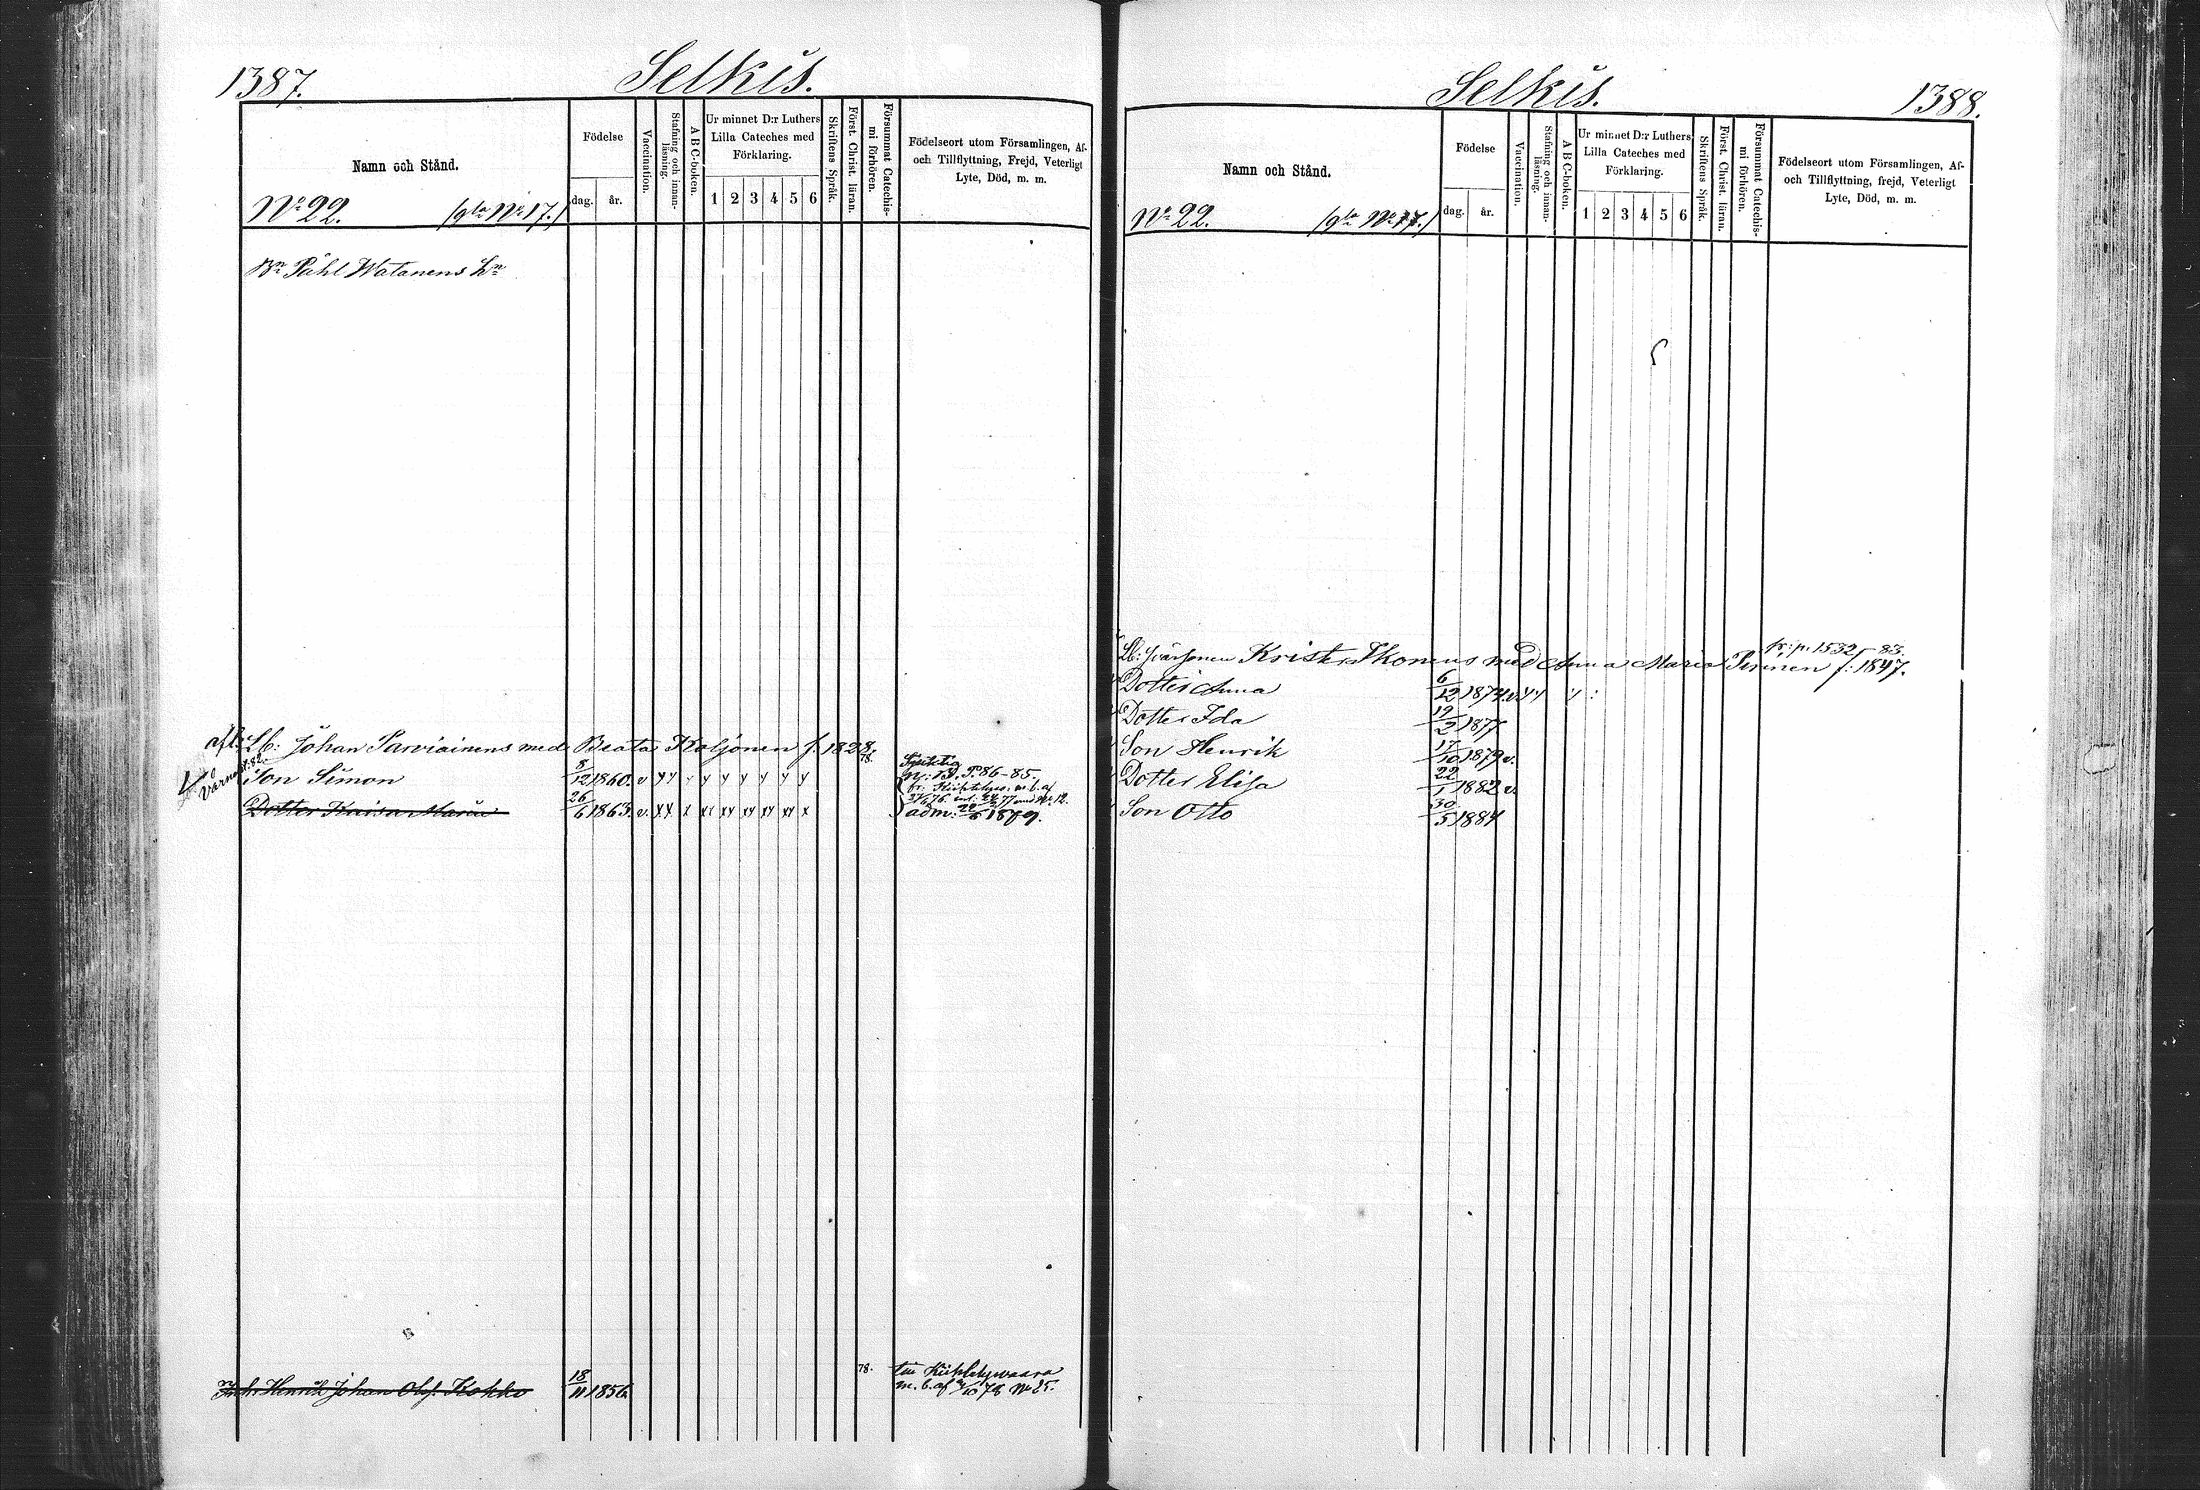 1387.
Selkis.
Namn och Stånd.
Födelse
dag. år.
Vaccination.
Stafning och innan-
läsning.
A B C-boken.
Ur minnet D:r Luthers
Lilla Cateches med
Förklaring.
1 2 3 4 5 6
Skriftens Språk.
Först. Christ. läran.
Försummat Catechis-
mi förhören.
Födelseort utom Församlingen, Af-
och Tillflyttning, Frejd, Veterligt
Lyte, Död, m. m.
No 22. (gla No 17.)
Bn Påhl Watanens Ln
Lb: Johan Parviainens med Beata Koljonen f. 1828.
78.
Son Simon 8/12 1860. v
N: 13. P. 86-85.
Dotter Kaisa Maria 26/6 1863. v.
adm:
Inh. Henrik Johan Olof. Kokko 18/11 1856.
78.
m. b. af
1388.
Selkis.
Namn och Stånd.
Födelse
dag. år.
Vaccination.
Stafning och innan-
läsning.
A B C-boken.
Ur minnet D:r Luthers
Lilla Cateches med
Förklaring.
1 2 3 4 5 6
Skriftens Språk.
Först. Christ. läran.
Försummat Catechis-
mi förhören.
Födelseort utom Församlingen, Af-
och Tillflyttning, frejd, Veterligt
Lyte, Död, m. m.
No 22. (gla No 17.)
fr: p. 1532/83.
Krister Ikonens med Anna Maria f: 1847.
Dotter Anna 6/12 1874. v.
Dotter Ida 19/2 1877
Son Henrik 17/10 1879 v.
Dotter Elisa 22/1 1882 v.
Son Otto 30/5 1884